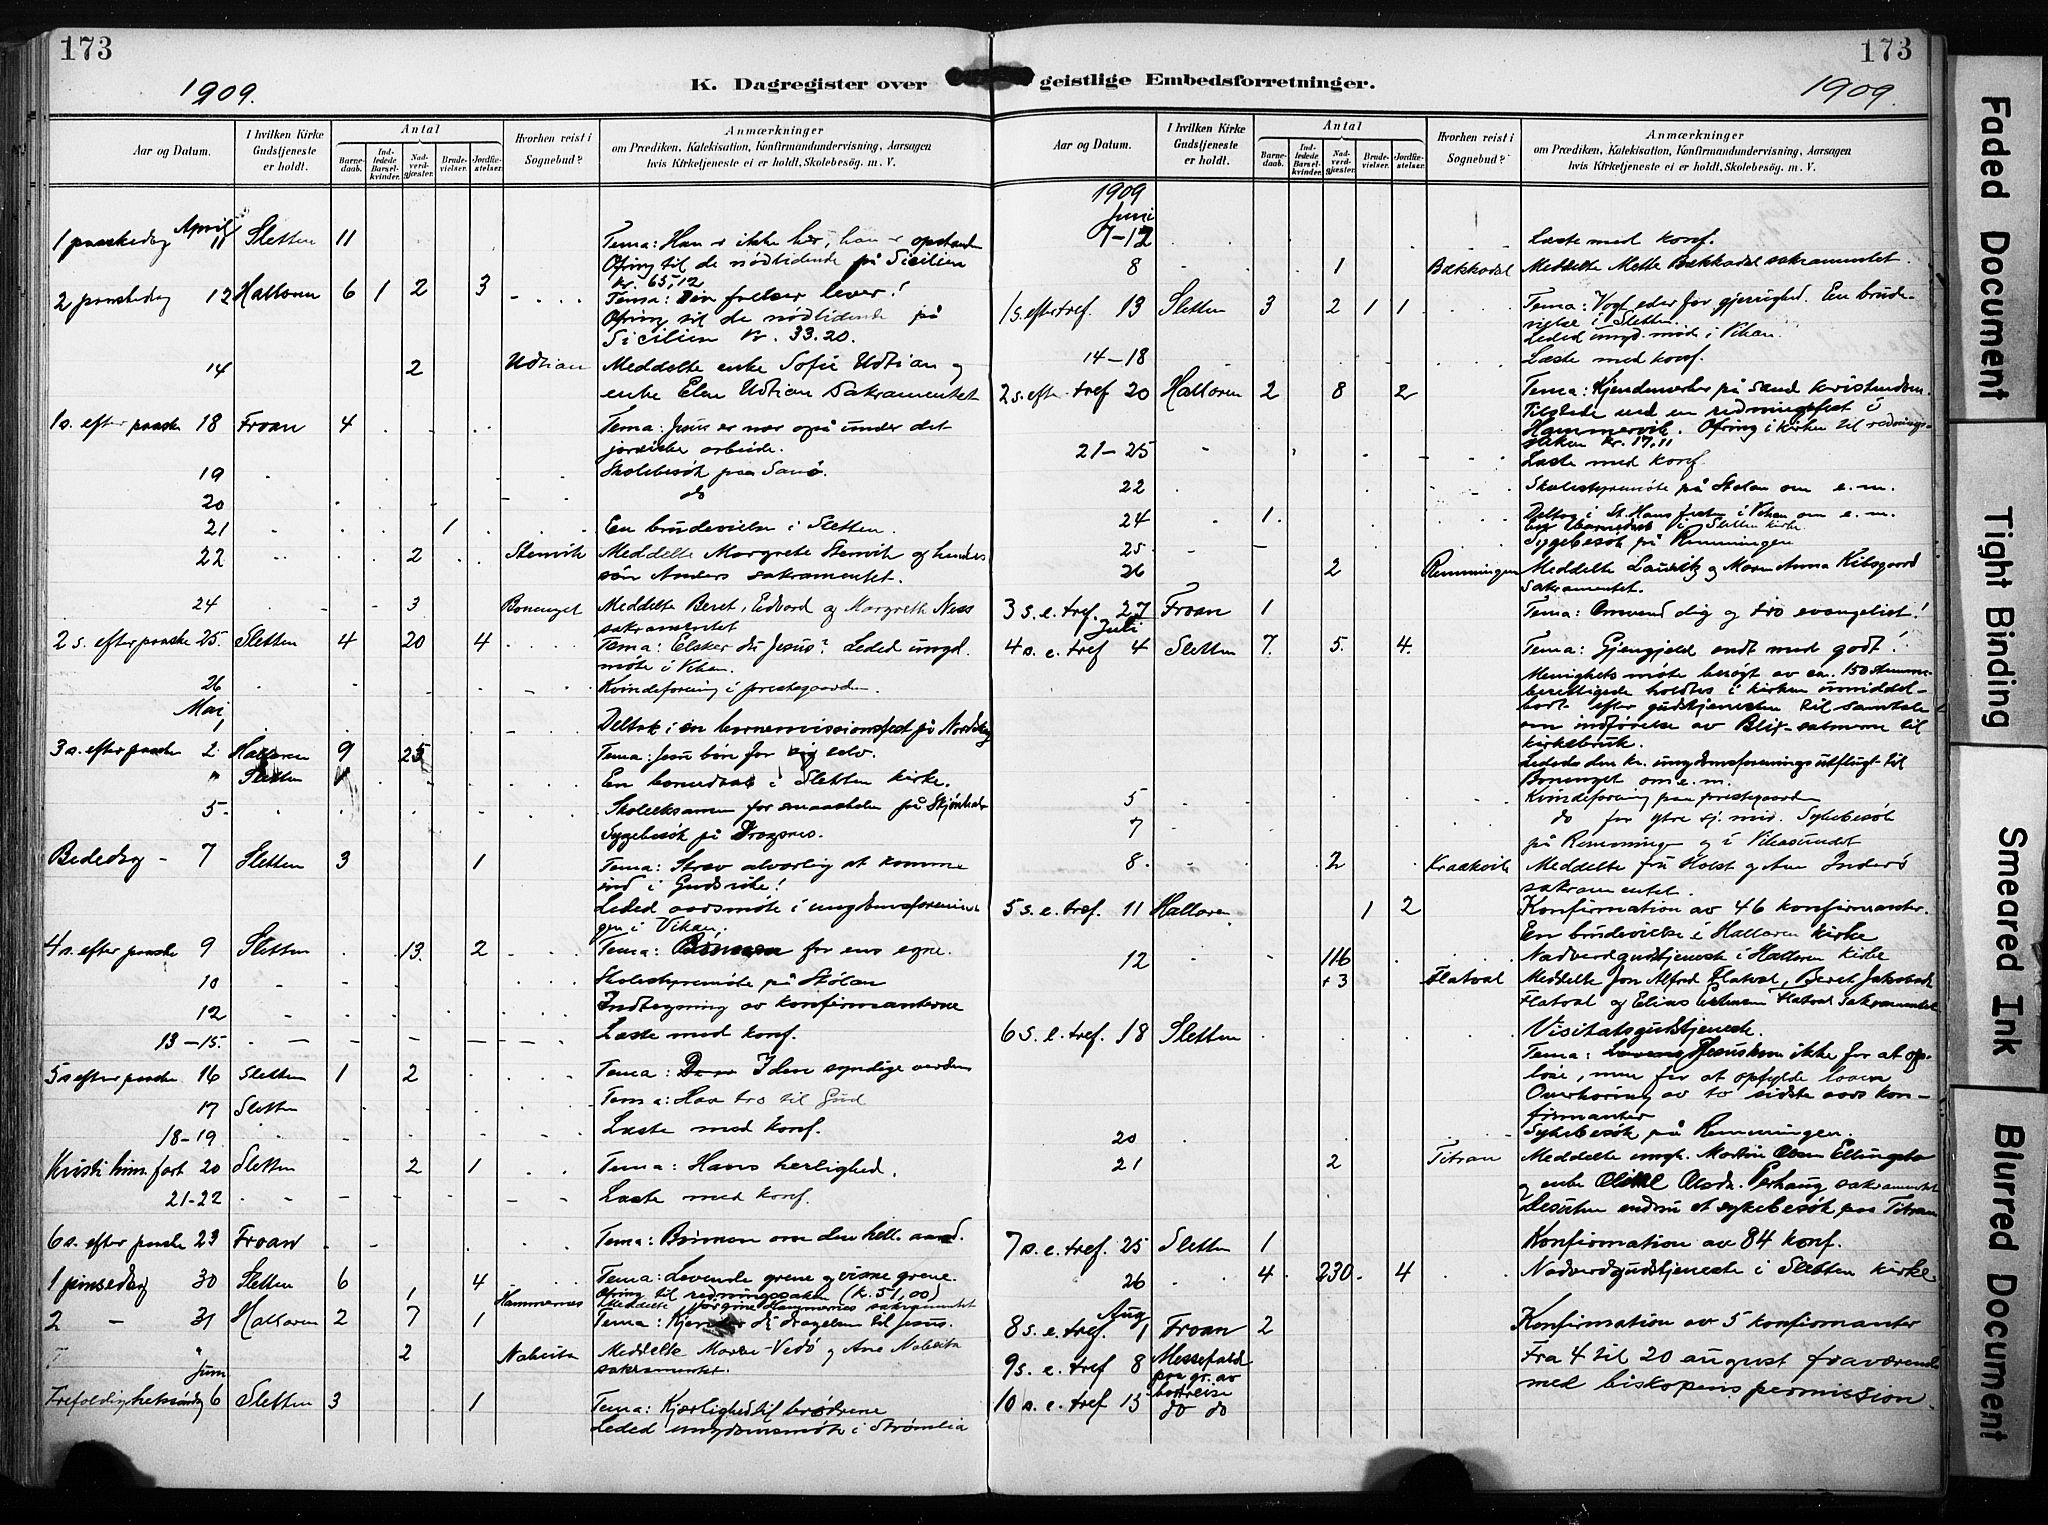 173
1909.
K. Dagregister over
Aar og Datum.
I hvilken Kirke Gudstjeneste er holdt.
Antal
Barnedaab.
Indledede Barselkvinder.
Nadverdgjæster.
Brudevielser.
Jordfæstelser.
Hvorhen reist i Sognebud?
Anmærkninger
om Prædiken, Katekisation, Konfirmandundervisning, Aarsagen
hvis Kirketjeneste ei er holdt, Skolebesög. m. V.
April
1 paaskedag 11 Sletten 11 Tema: Han er ikke her, han er opstanden
Ofring til de nödlidende på Sicilien
kr. 65,12
2 paaskedag 12 Hallaren 6 1 2 3 Tema: Din frelser lever!
Ofring til de nödlidende på
Sicilien kr. 33.20.
14 2 Udtian Meddelte enke Sofie Udtian og
enke Elen Udtian sakramentet
1 s. efter paaske 18 Froan 4 Tema: Jesus er nær også under det
jordiske arbeide.
19 Skolebesök paa Sanö.
20 do
21 1 En brudevielse i Sletten.
22 2 Stenvik Meddelte Margrete Stenvik og hendes
sön Anders sakramentet.
24 3 Bonenget Meddelte Beret, Edvard og Margrete Ness
sakramentet
2 s. efter paaske 25. Sletten 4 20 4 Tema: Elsker du Jesus? Leded ungd.
möte i Vikan.
26 Kvindeforening i prestegaarden.
Mai
1 Deltok i en barnemissionsfest på
3 s. efter paaske 2 Hallaren 9 25 Tema: Jesu bön for sig selv.
" Sletten En barnedaab i Sletten kirke.
5. Skoleeksamen for smaaskolen på
Sygebesök på Dragsnes.
Bededag - 7 Sletten 3 1 Tema: Stræv alvorlig at komme
ind i Guds rike!
Leded aarsmöte i ungdomsforenin
gen i Vikan.
4 s. efter paaske 9 Sletten 13. 2 Tema: Bönnen for ens egne.
10 Skolestyremöte på Stölan
12 Indtegning av konfirmanterne
13-15. Læste med konf.
5 s efter paaske 16 Sletten 1 2 Tema: I den syndige verden
17 Sletten Tema: Hav tro til Gud
18-19. Læste med konf.
Kristi him. fart 20 Sletten 2 1 Tema: Hans herlighed.
21-22 Læste med konf.
6 s. efter paaske 23 Froan Tema: Bönnen om den hell. aand.
1 pinsedag 30 Sletten 6 1 4 Tema: Levende grene og visne grene.
Ofring til redningssaken (k. 51,00)
Hammernes Meddelte Jörgine Hammernes sakramentet
2 - 31 Hallaren 2 7 1 Tema: Kjender du dragelsen til Jesus.
" 2 Nabeita Meddelte Maren Vedö og Ane Nabeita
sakramentet.
Juni
Trefoldighetsöndag 6 Sletten 3 1 Tema: Kjærlighed til brödrene
Leded ungdomsmöte i Strömlia
173
1909.
geistlige Embedsforretninger.
Aar og Datum.
I hvilken Kirke Gudstjeneste er holdt.
Antal
Barnedaab.
Indledede Barselkvinder.
Nadverdgjæster.
Brudevielser.
Jordfæstelser.
Hvorhen reist i Sognebud?
Anmærkninger
om Prædiken, Katekisation, Konfirmandundervisning, Aarsagen
hvis Kirketjeneste ei er holdt, Skolebesög. m. V.
1909
Juni
7-12 Læste med konf.
8 1 Bakkadal Meddelte Mette Bakkadal sakramentet.
1 s. efter tref. 13 Sletten 3 2 1 1 Tema: Vogt eder for gjerrighed. En brude-
vielse i Sletten.
Leded ungd. möte i Vikan.
14-18 Læste med konf.
2 s. eft. tref 20 Hallaren 2 8 2 Tema: Kjendemerker på sand kristendom.
Tilstede ved en redningsfest i
Hammervik. Ofring i kirken til rednings-
saken kr. 17,11
21-25 Læste med konf.
22 Skolestyremöte på Stolan om e.m.
24 1. Deltog i St. Hans festen i Vikan om e.m.
En barnedaab i Sletten kirke.
25 Sygebesök på Remmingen
26 2 Remmingen Meddelte Lauritz og Maren Anna Kibsgaard
sakramentet.
3 s. e. tref. 27 Froan 1 Tema: Omvend dig og tro evangeliet!
Juli
4 s. e. tref 4 Sletten 7. 5. 4. Tema: Gjengjeld ondt med godt!
Menighetsmöte besögt av ca. 150 stemme-
berettigede holdtes i kirken umiddel-
bart efter gudstjenesten til samtale
om indförelse av Blix-salmerne til
kirkebruk.
Lededs den kr. ungdomsforenings utflugt til
Bonenget om e.m.
5 Kvindeforening paa prestegaarden
7 do for ytre sj. mis. Sykebesök
på Remmingen og i Vikasundet
8. 2 Kraakvik Meddelte fru Holst og Ane Inderö
sakramentet.
5 s. e. tref. 11 Hallaren 1 2 Konfirmation av 46 konfirmanter.
En brudevielse i Hallaren kirke
12 116 Nadverdgudstjeneste i Hallaren kirke
+3 Flatval Meddelte Jon Alfred Flatval, Beret
Flatval og Elias Flatval sakramentet
6 s. e. tref. 18 Sletten Visitatsgudstjeneste.
Tema: Jesus kom ikke for at op-
löse, men for at opfylde loven
Overhöring av to sidste aars kon-
firmanter
20 Sykebesök på Remmingen.
21 2 Titran Meddelte ungk. Martin Olsen
og enke Olsdr. sakramentet
Desuten endnu et sykebesök paa Titran
7 s. e. tref. 25 Sletten 1 Konfirmation av 84 konf.
26 4 230 4 Nadverdgudstjeneste i Sletten kirke
Aug
8 s. e. tref. 1 Froan 2 Konfirmation av 5 konfirmanter
9 s. e. tref 8 Messefald
paa gr. av
bortreise
Fra 4 til 20 august fraværende
med biskopens permission.
10 s. e. tref 15 do do
Faded Document
Tight Binding
Smeared Ink
Blurred Document